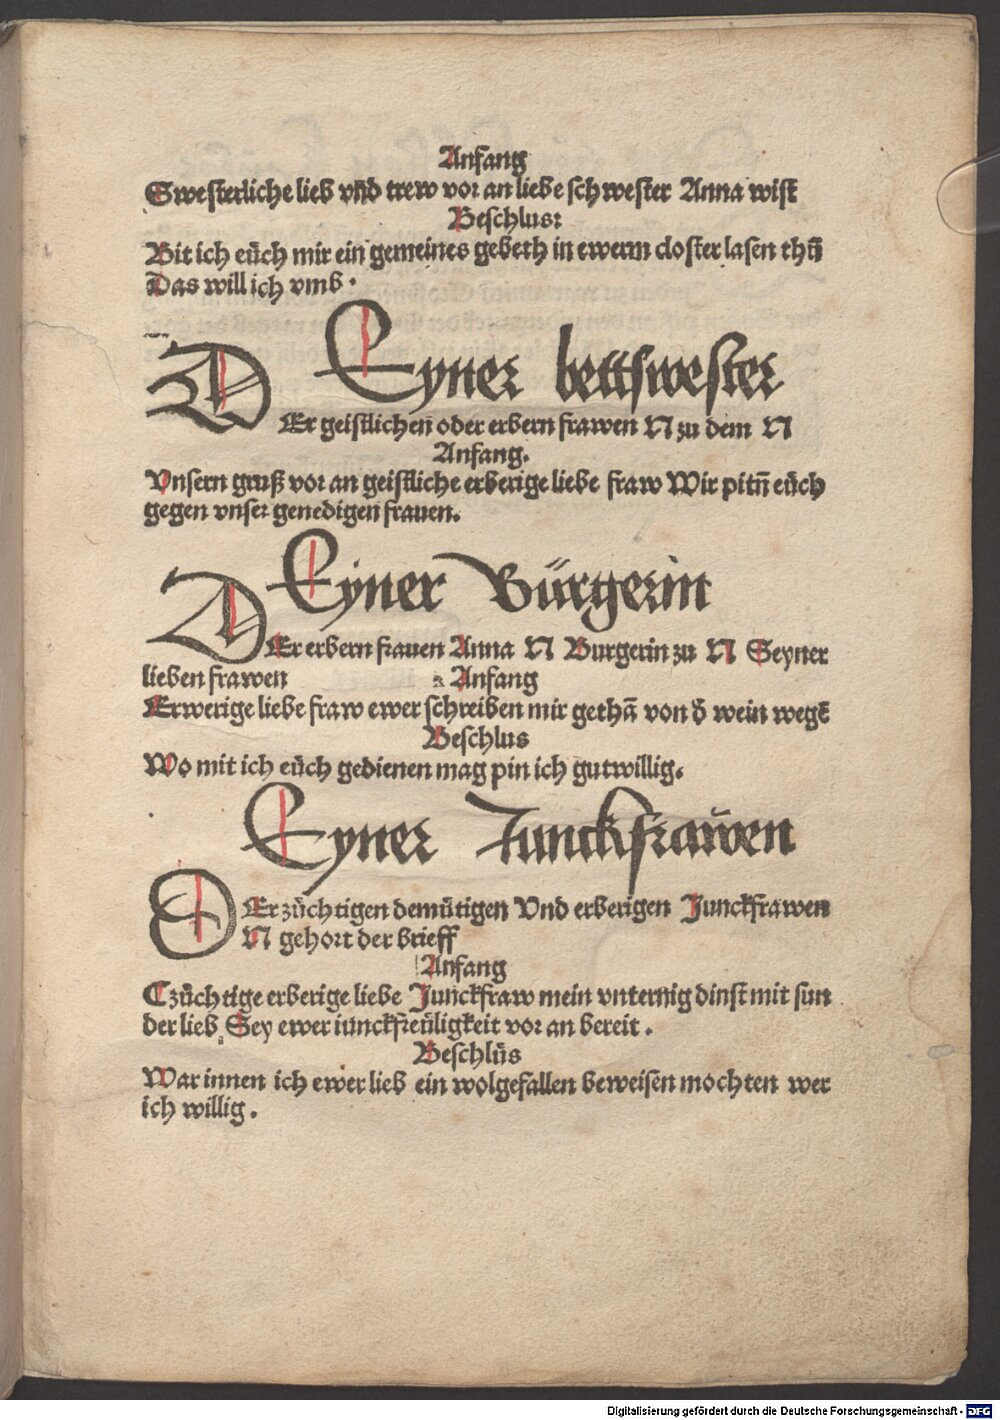 Anfang
Swesterliche lieb vñd trew vor an liebe schwester Anna wist
Beschlus:
Bit ich eüch mir ein gemeines gebeth in ewerm closter lasen thū
Das will ich vmb.
Eyner bettswester
DEr geistlichen oder erbern frawen N zu dem N
Anfang.
Vnsern gruß vor an geistliche erberige liebe fraw Wir pitn̄ eüch
gegen vnser genedigen frauen.
Eyner Bürgerin
DEr erbern frauen Anna N Burgerin zu N Seyner
lieben frawen Anfang
Erwerige liebe fraw ewer schreiben mir gethā von d̄ wein wegē
Beschlus
Wo mit ich eüch gedienen mag pin ich gutwillig.
Eyner Junckfrawen
DEr züchtigen demütigen Vnd erberigen Junckfrawen
N gehort der brieff
Anfang
Czüchtige erberige liebe Junckfraw mein vnternig dinst mit sun
der lieb Sey ewer iunckfreüligkeit vor an bereit.
Beschlüs
War innen ich ewer lieb ein wolgefallen beweisen mochten wer
ich willig.
Digitalisierung gefördert durch die Deutsche Forschungsgemeinschaft - DFG